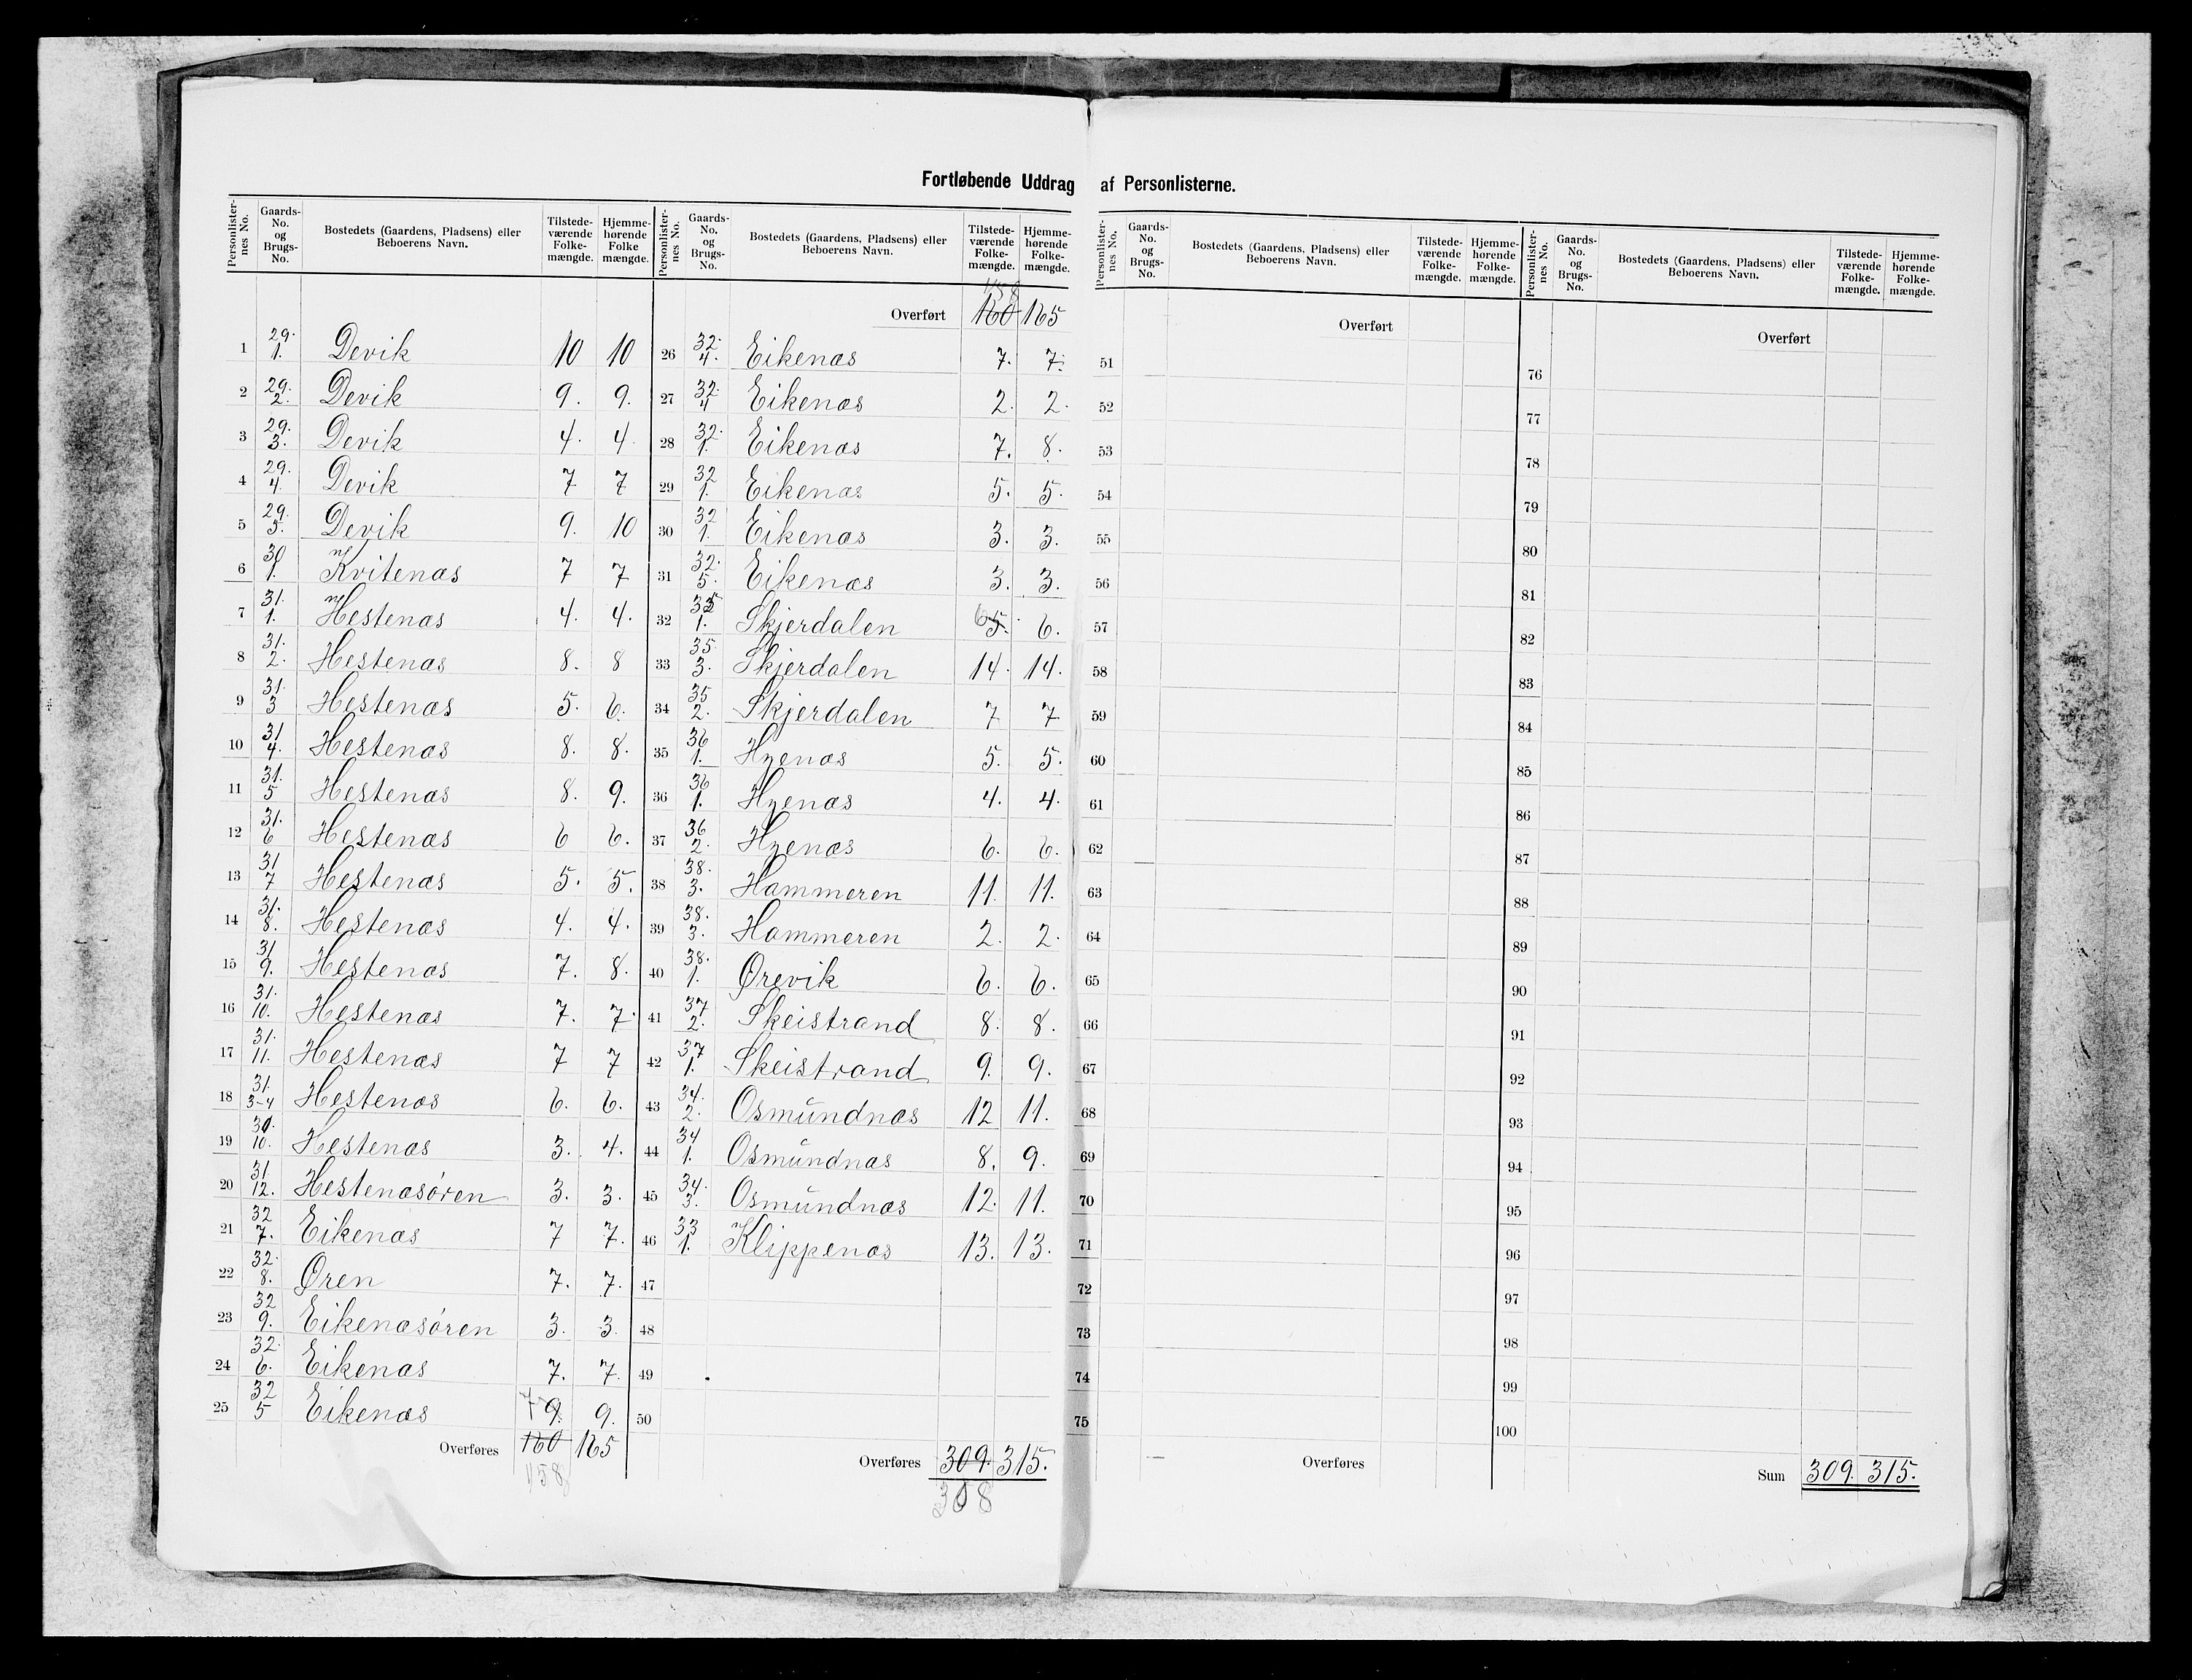 Fortløbende Uddrag af Personlisterne.
Personlister-nes No. | Gaards-No. og Brugs-No. | Bostedets (Gaardens, Pladsens) eller Beboerens Navn. | Tilstede-værende Folke-mængde. | Hjemme-hørende Folke mængde.
1 29. 1. Devik 10 10
2 29. 2. Devik 9. 9.
3 29. 3. Devik 4. 4
4 29. 4. Devik 7 7
5 29. 5. Devik 9. 10
6 30 1. Kvitenæs 7 7
7 31. 1. Hestenæs 4. 4.
8 31. 2. Hestenæs 8. 8
9 31. 3 Hestenæs 5. 6.
10 31 4. Hestenæs 8. 8.
11 31. 5 Hestenæs 8. 9.
12 31. 6 Hestenæs 6 6.
13 31 7 Hestenæs 5. 5.
14 31. 8. Hestenæs 4. 4.
15 31 9. Hestenæs 7. 8.
16 31. 10. Hestenæs 7. 7.
17 31. 11. Hestenæs 7 7
18 31. 3-4 Hestenæs 6. 6.
19 10. Hestenæs 3. 4.
20 31 12. Hestenæsøren 3. 3.
21 32 7. Eikenæs 7 7.
22 32. 8. Øren 7. 7.
23 32 9. Eikenæsøren 3. 3.
24 32. 6. Eikenæs 7. 7.
25 32 5 Eikenæs 7 9. 9.
Overføres 160 165
158
Personlister-nes No. | Gaards-No. og Brugs-No. | Bostedets (Gaardens, Pladsens) eller Beboerens Navn. | Tilstede-værende Folke-mængde. | Hjemme-hørende Folke-mængde.
158
Overført 160 165
26 32. 4. Eikenæs 7. 7.
27 32. 4 Eikenæs 2. 2.
28 32. 1. Eikenæs 7. 8.
29 32 1. Eikenæs 5. 5.
30 32 1. Eikenæs 3. 3.
31 32. 5. Eikenæs 3. 3.
32 35 1. Skjerdalen 6 5. 6.
33 35. 3. Skjerdalen 14. 14.
34 35 2. Skjerdalen 7 7
35 36 1. Hyenæs 5. 5.
36 36 1. Hyenæs 4. 4.
37 36 2. Hyenæs 6. 6.
38 38. 3. Hammeren 11. 11.
39 38. 3. Hammeren 2. 2.
40 38. 1. Ørevik 6. 6.
41 37 2. Skeistrand 8. 8.
42 37 1. Skeistrand 9. 9.
43 34. 2. Osmundnæs 12 11.
44 34 1. Osmundnæs 8. 9.
45 34. 3. Osmundnæs 12. 11.
46 33 1. Klippenæs 13. 13.
47
48
49
50
Overføres 309. 315.
308
Personlister-nes No. | Gaards-No. og Brugs-No. | Bostedets (Gaardens, Pladsens) eller Beboerens Navn. | Tilstede-værende Folke-mængde. | Hjemme-hørende Folke-mængde.
Overført
51
52
53
54
55
56
57
58
59
60
61
62
63
64
65
66
67
68
69
70
71
72
73
74
75
Overføres
Personlister-nes No. | Gaards-No. og Brugs-No. | Bostedets (Gaardens, Pladsens) eller Beboerens Navn. | Tilstede-værende Folke-mængde. | Hjemme-hørende Folke-mængde.
Overført
76
77
78
79
80
81
82
83
84
85
86
87
88
89
90
91
92
93
94
95
96
97
98
99
100
Sum 309. 315.